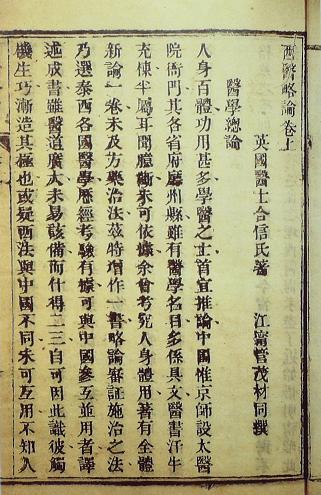 西醫略論卷上
英國醫士合信氏著　江寧管茂材同撰
醫學總論
人身百體功用甚多學醫之士首宜推論中國惟京師設太醫
院衙門其各省府廳州縣雖有醫學名目多係具文醫書汗牛
充棟半屬耳聞臆斷未可依據余曾考究人身體用著有全體
新論一卷未及方藥治法茲特增作一書略論審証施治之法
乃選泰西各國醫學歷經考驗有據可與中國參互並用者譯
述成書雖醫道廣大未易該備而什得二三自可因此識彼觸
機生巧漸造其極也或疑西法與中國不同未可互用不知人